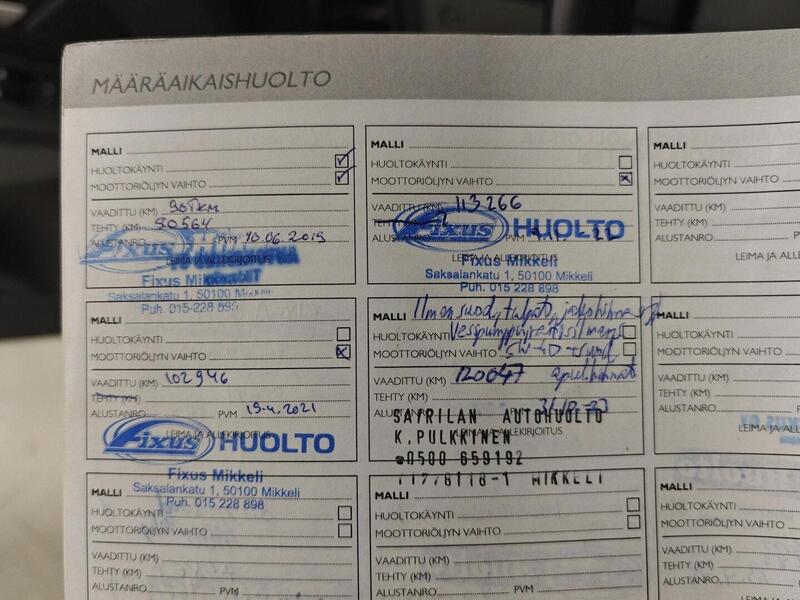 MÄÄRÄAIKAISHUOLTO
MALLI
HUOLTOKÄYNTI
MOOTTORIÖLJYN VAIHTO
VAADITTU (KM) 90TKM
TEHTY (KM) 90564
ALUSTANRO PVM 10.06.2019
LEIMA JA ALLEKIRJOITUS
Fixus
Fixus Mikkeli
Saksalankatu 1, 50100 Mikkeli
Puh. 015-228 898
MALLI
HUOLTOKÄYNTI
MOOTTORIÖLJYN VAIHTO
VAADITTU (KM) 113266
TEHTY (KM)
ALUSTANRO PVM
Fixus HUOLTO
LEIMA JA ALLEKIRJOITUS
Fixus Mikkeli
Saksalankatu 1, 50100 Mikkeli
Puh. 015 228 898
MALLI
HUOLTOKÄYNTI
MOOTTORIÖLJYN VAIHTO
VAADITTU (KM)
TEHTY (KM)
ALUSTANRO
LEIMA JA
MALLI
HUOLTOKÄYNTI
MOOTTORIÖLJYN VAIHTO
VAADITTU (KM) 102946
TEHTY (KM)
ALUSTANRO PVM 19.4.2021
LEIMA JA ALLEKIRJOITUS
Fixus HUOLTO
Fixus Mikkeli
Saksalankatu 1, 50100 Mikkeli
Puh. 015 228 898
Ilmansuod, tulpat, jakohihna
MALLI
HUOLTOKÄYNTI
MOOTTORIÖLJYN VAIHTO
VAADITTU (KM) 120047 apul.hihnat
TEHTY (KM)
ALUSTANRO PVM
SAIRILAN AUTOHUOLTO
LEIMA JA ALLEKIRJOITUS
K.PULKKINEN
☎0500 659192
MIKKELI
MALLI
HUOLTOKÄYNTI
MOOTTORIÖLJYN VAIHTO
VAADITTU (KM)
TEHTY (KM)
ALUSTANRO
LEIMA JA ALLE
MALLI
HUOLTOKÄYNTI
MOOTTORIÖLJYN VAIHTO
VAADITTU (KM)
TEHTY (KM)
ALUSTANRO PVM
MALLI
HUOLTOKÄYNTI
MOOTTORIÖLJYN VAIHTO
VAADITTU (KM)
TEHTY (KM)
ALUSTANRO PVM
MALLI
HUOLTOKÄYNTI
MOOTTORIÖLJYN VAIHTO
VAADITTU (KM)
TEHTY (KM)
ALUSTANRO